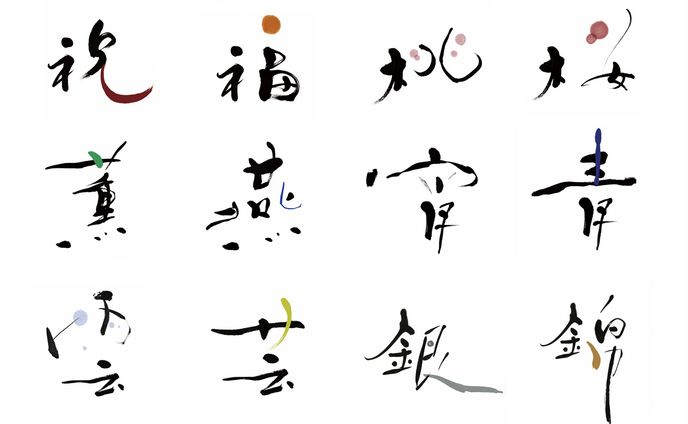 祝 福 桃 桜
薫 燕 宵 青
雲 芸 銀 錦